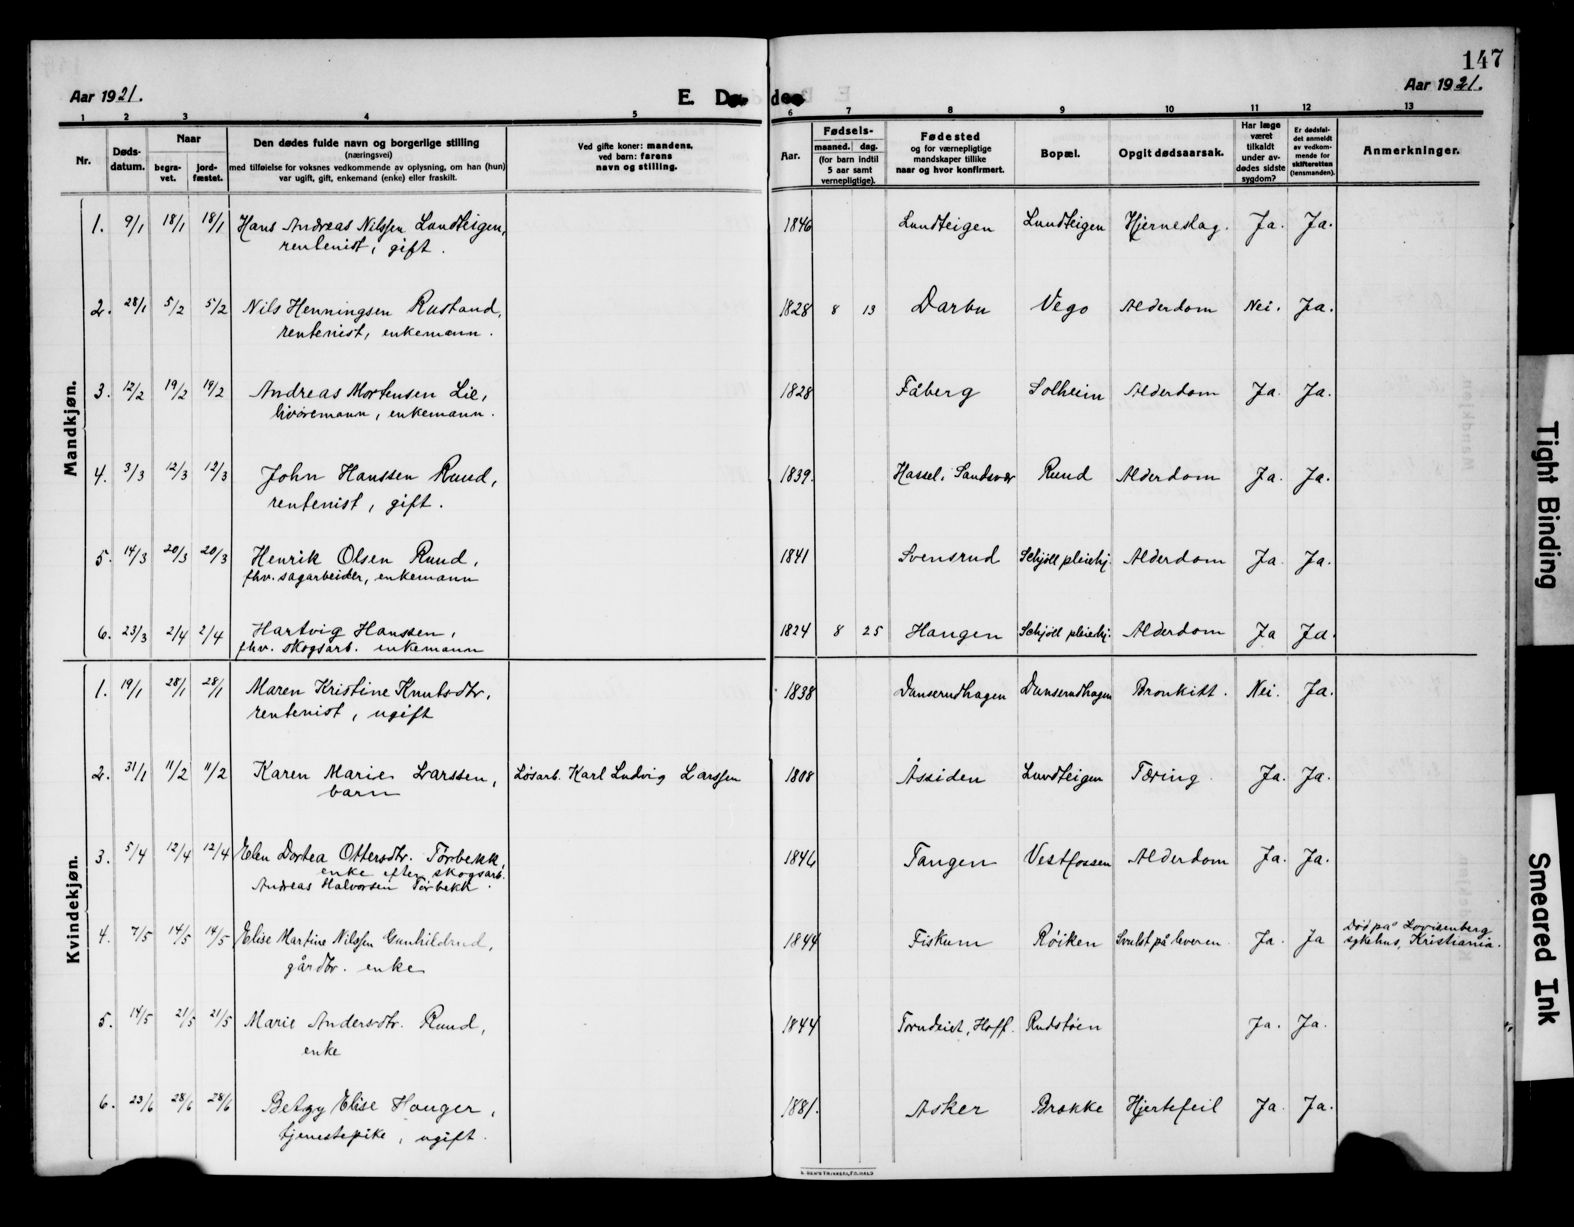 147
Aar 1921.
E. Døde
Aar 1921.
1 2 3 4 5 6 7 8 9 10 11 12 13
Nr.
Døds-
datum.
Naar
begra-
vet.
jord-
fæstet.
Den dødes fulde navn og borgerlige stilling
(næringsvei)
med tilføielse for voksnes vedkommende av oplysning, om han (hun)
var ugift, gift, enkemand (enke) eller fraskilt.
Ved gifte koner: mandens,
ved barn: farens
navn og stilling.
Aar.
Fødsels-
maaned. dag.
(for barn indtil
5 aar samt
vernepligtige).
Fødested
og for værnepligtige
mandskaper tillike
naar og hvor konfirmert.
Bopæl.
Opgit dødsaarsak.
Har læge
været
tilkaldt
under av-
dødes sidste
sygdom?
Er dødsfal-
det anmeldt
av vedkom-
mende for
skifteretten
(lensmanden).
Anmerkninger.
Mandkjøn.
1. 9/1 18/1 18/1 Hans Andreas Nilssen Lundteigen, 1846 Lundteigen Lundteigen Hjerneslag. Ja. Ja.
rentenist, gift.
2. 28/1 5/2 5/2 Nils Henningsen Rustand, 1828 8 13 Darbu Vego Alderdom Nei. Ja.
rentenist, enkemann.
3. 12/2 19/2 19/2 Andreas Mortensen Lie, 1828 Fåberg Solheim Alderdom Ja. Ja.
livøremann, enkemann.
4. 3/3 12/3 12/3 John Hanssen Ruud, 1839. Hassel, Sandsvær Ruud Alderdom Ja. Ja.
rentenist, gift.
5. 14/3 20/3 20/3 Henrik Olsen Ruud, 1841 Svensrud Schjøll pleiehj. Alderdom Ja. Ja.
fhv. sagarbeider, enkemann
6. 23/3 2/4 2/4 Hartvig Hanssen, 1824 8 25 Haugen Schjøll pleiehj. Alderdom Ja Ja.
fhv. skogsarb. enkemann
Kvindekjøn.
1. 19/1 28/1 28/1 Maren Kristine Knutsdtr., 1838 Danserudhagen Danserudhagen Bronkitt. Nei. Ja.
rentenist, ugift
2. 31/1 11/2 11/2 Karen Marie Larssen, Løsarb. Karl Ludvig Larssen 1808 Åssiden Lundteigen Tæring. Ja. Ja.
barn
3. 5/4 12/4 12/4 Elen Dortea Ottersdtr. Tørbekk, 1846 Tangen Vestfossen Alderdom Ja. Ja.
enke efter skogsarb.
Andreas Halvorsen Tørbekk.
4. 7/5 14/5 14/5 Elise Martine Nilssen Gunhildrud, 1844 Fiskum Røiken Svulst på leveren. Ja. Ja Død på Lovisenberg
gårdbr. enke sykehus, Kristiania.
5. 14/5 21/5 21/5 Marie Andersdtr. Ruud, 1844 Torudeiet, Hoff. Rudstøen Ja. Ja.
enke
6. 23/6 28/6 28/6 Betzy Elise Hauger, 1881. Asker Brekke Hjertefeil Ja. Ja.
tjenestepike, ugift.
Tight Binding
Smeared Ink